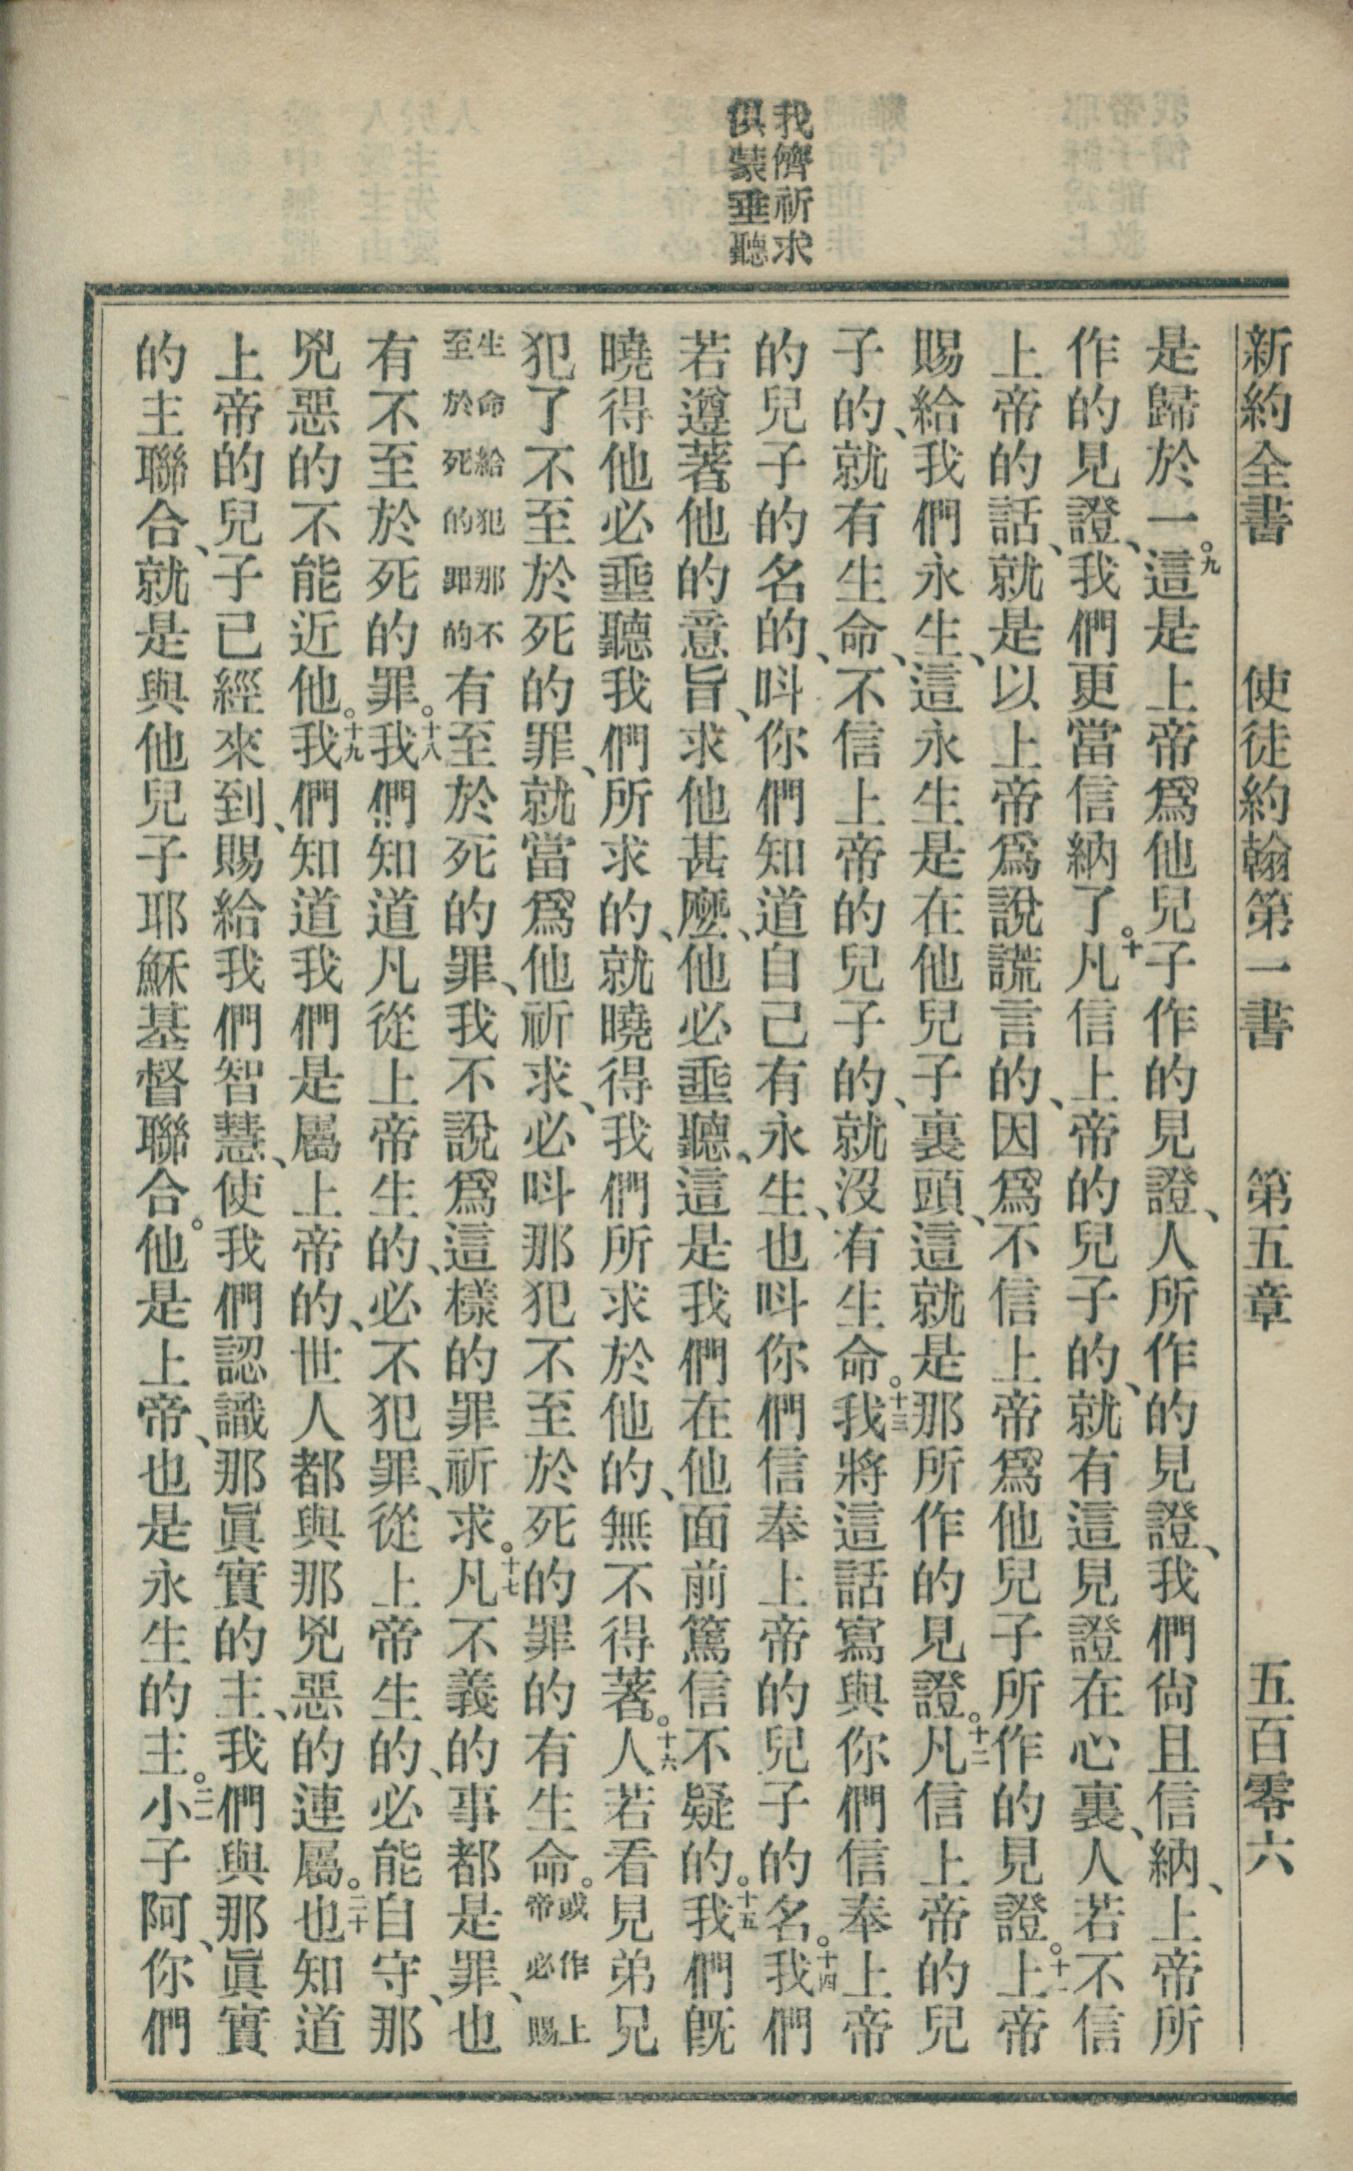 新約全書　使徒約翰第一書　第五章　五百零六
我儕祈求
俱蒙垂聽
是歸於一。九這是上帝爲他兒子作的見證、人所作的見證、我們尙且信納、上帝所
作的見證、我們更當信納了。十凡信上帝的兒子的、就有這見證在心裏、人若不信
上帝的話、就是以上帝爲說謊言的、因爲不信上帝爲他兒子所作的見證。十一上帝
賜給我們永生、這永生是在他兒子裏頭、這就是那所作的見證。十二凡信上帝的兒
子的、就有生命、不信上帝的兒子的、就沒有生命。十三我將這話寫與你們信奉上帝
的兒子的名的、呌你們知道自己有永生、也呌你們信奉上帝的兒子的名。十四我們
若遵著他的意旨、求他甚麼、他必垂聽、這是我們在他面前篤信不疑的。十五我們旣
曉得他必垂聽我們所求的、就曉得我們所求於他的、無不得著。十六人若看見弟兄
犯了不至於死的罪、就當爲他祈求、必呌那犯不至於死的罪的有生命。或作上帝必賜
生命給犯那不至於死的罪的有至於死的罪、我不說爲這樣的罪祈求。十七凡不義的事都是罪、也
有不至於死的罪。十八我們知道凡從上帝生的、必不犯罪、從上帝生的、必能自守、那
兇惡的不能近他。十九我們知道我們是屬上帝的、世人都與那兇惡的連屬。二十也知道
上帝的兒子已經來到、賜給我們智慧、使我們認識那眞實的主、我們與那眞實
的主聯合、就是與他兒子耶穌基督聯合。他是上帝、也是永生的主。二一小子阿、你們